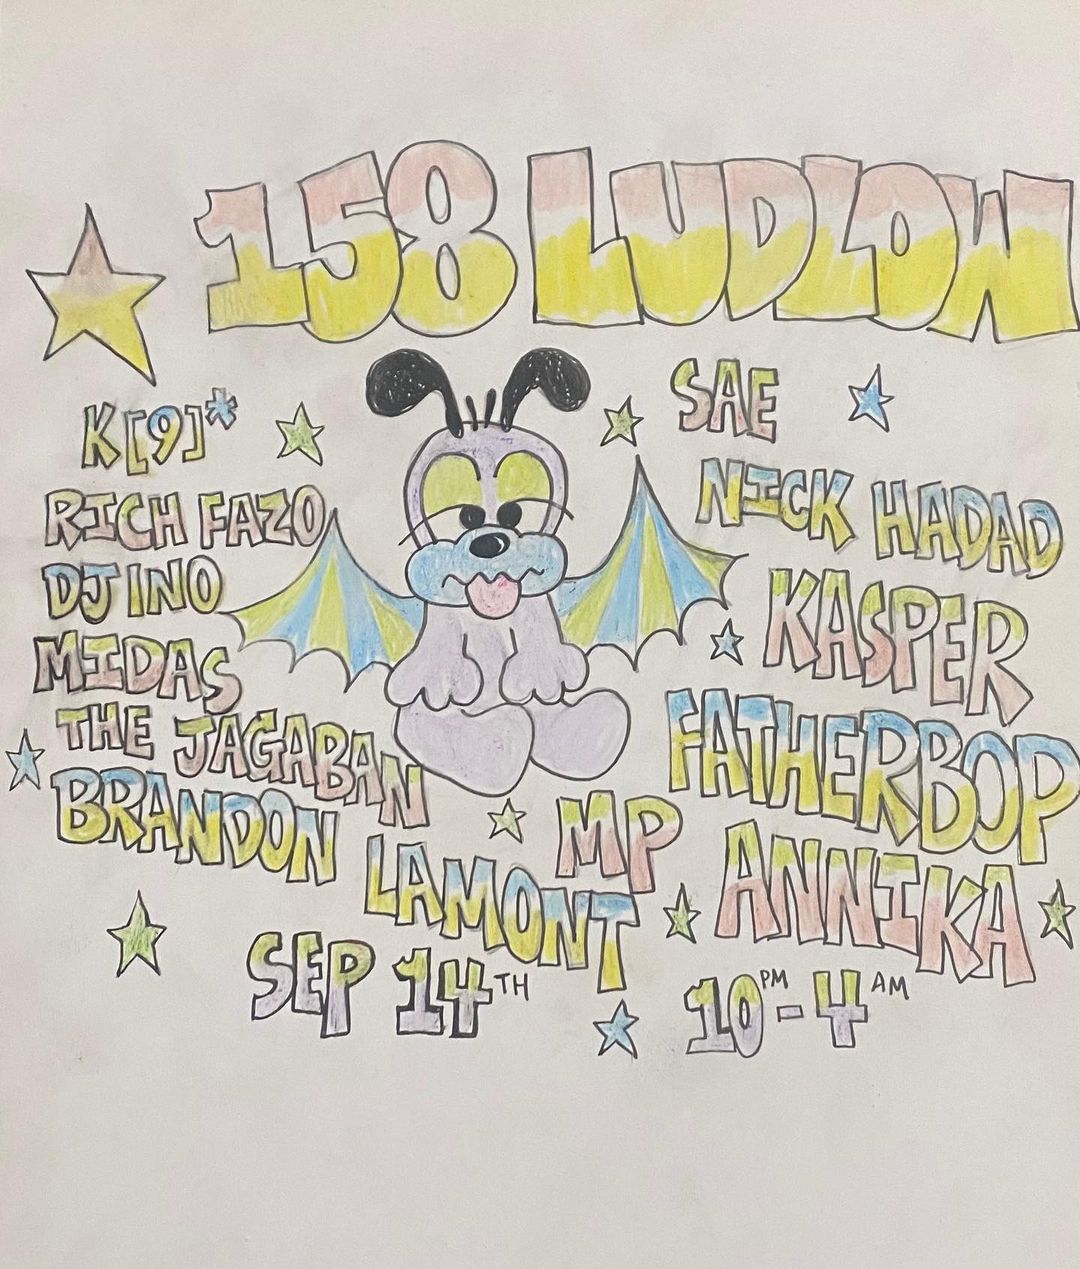 158 LUDLOW
K[9]*
RICH FAZO
DJ INO
MIDAS
THE JAGABAN
BRANDON LAMONT
SAE
NICK HADAD
KASPER
FATHERBOP
MP
ANNIKA
SEP 14TH
10PM - 4AM